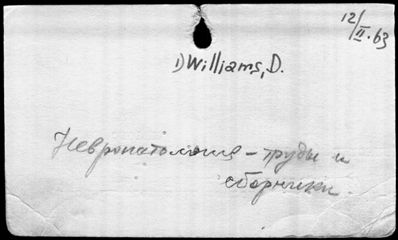 12/II.63
1) Williams, D.
Невропатология – труды и
сборники.